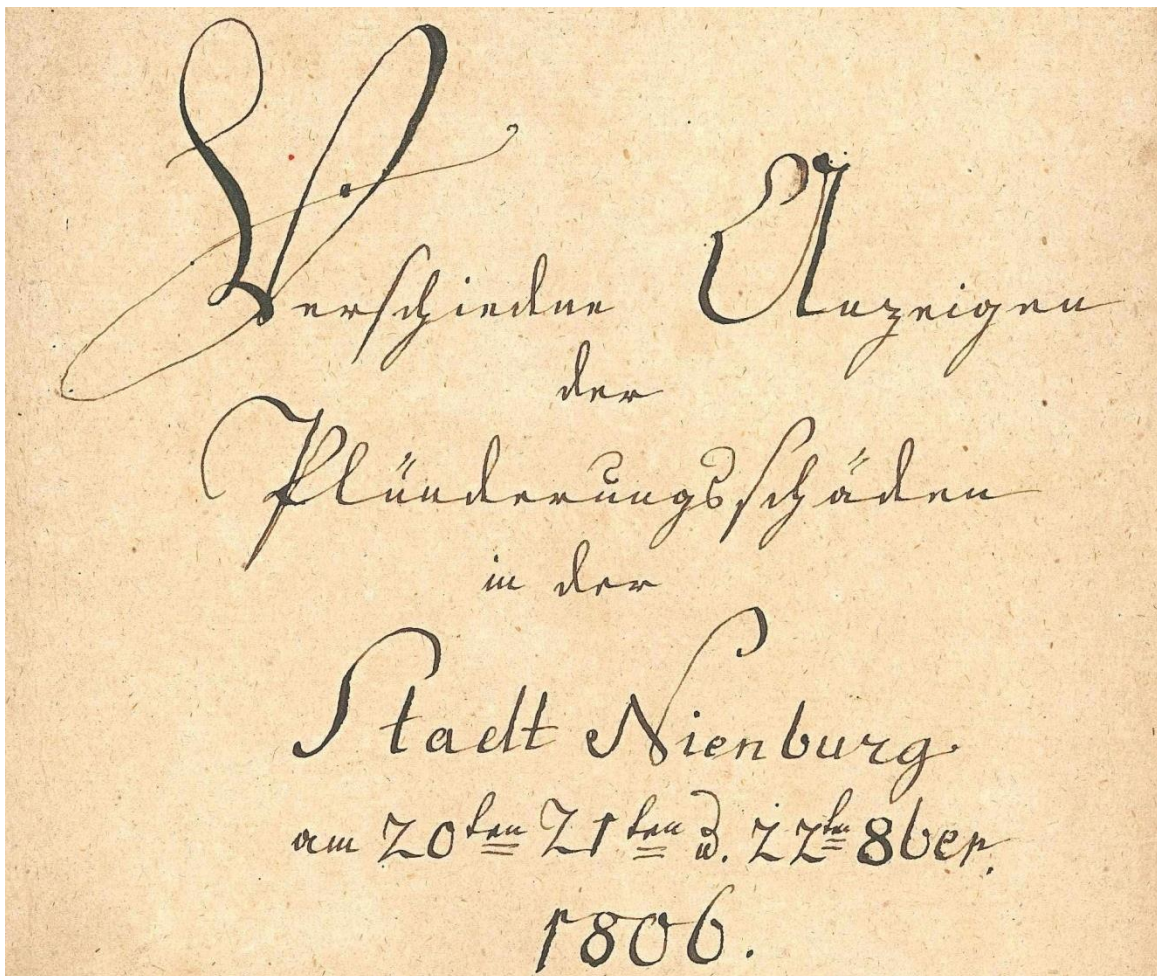 Verschiedne Anzeigen
der
Plünderungsschäden
in der
Stadt Nienburg
am 20ten 21ten u. 22ten 8ber.
1806.